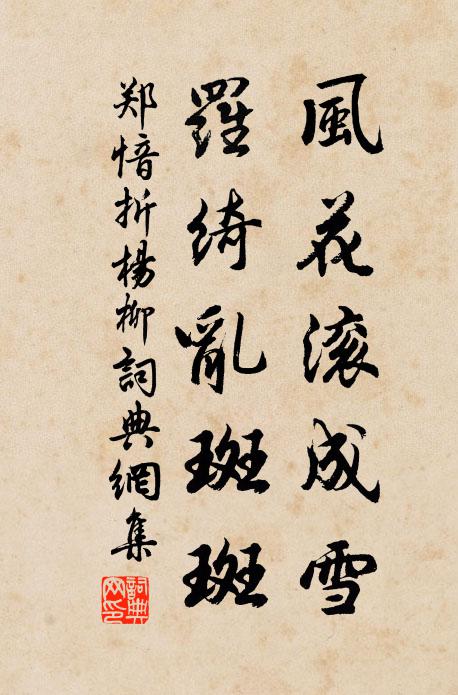 風花滚成雪
羅綺亂斑斑
郑愔折楊柳詞典網集
詞典网印